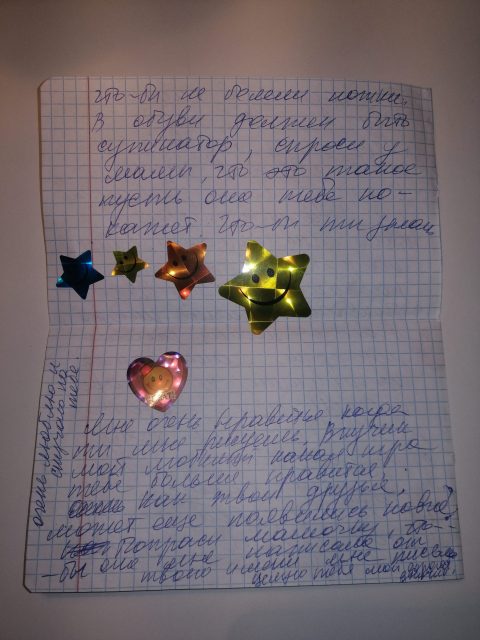 что-бы не болели ножки.
В обуви должен быть
супинатор, спроси у
мамы, что это такое
пусть она тебе по-
кажет что-бы ты знал
Мне очень нравится когда
ты мне рисуешь. Внучек
мой любимый какая игра
тебе больше нравится?
как твои друзья,
может еще появились новые?
Попроси мамочку, что-
-бы она мне написала от
твоего имени мне письмо
целую тебя мой дорогой
очень люблю и
скучаю по
тебе.